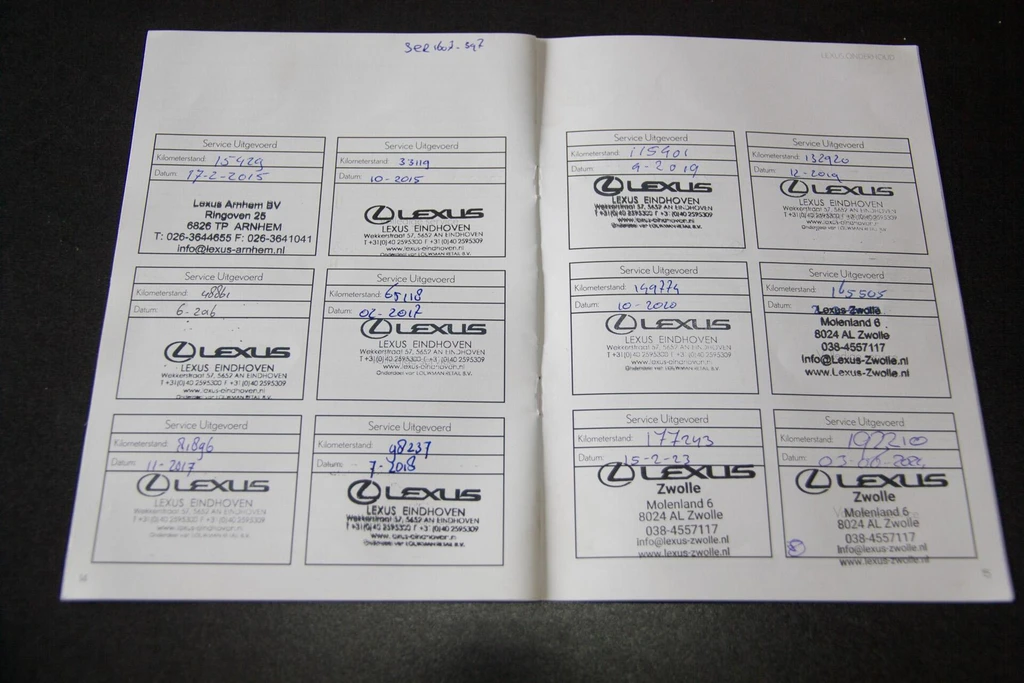 LEXUS ONDERHOUD
Service Uitgevoerd
Kilometerstand: 15429
Datum: 17-2-2015
Lexus Arnhem BV
Ringoven 25
6826 TP ARNHEM
T: 026-3644655 F: 026-3641041
info@lexus-arnhem.nl
Service Uitgevoerd
Kilometerstand: 33119
Datum: 10-2015
LEXUS
LEXUS EINDHOVEN
Wekkerstraat 57, 5652 AN EINDHOVEN
T +31(0)40 2595300 F +31(0)40 2595309
www.lexus-eindhoven.nl
Onderdeel van LOUWMAN RETAIL B.V.
Service Uitgevoerd
Kilometerstand: 48861
Datum:
LEXUS
LEXUS EINDHOVEN
Wekkerstraat 57, 5652 AN EINDHOVEN
T +31(0)40 2595300 F +31(0)40 2595309
www.lexus-eindhoven.nl
Onderdeel van LOUWMAN RETAIL B.V.
Service Uitgevoerd
Kilometerstand: 65118
Datum: 02-2017
LEXUS
LEXUS EINDHOVEN
Wekkerstraat 57, 5652 AN EINDHOVEN
T +31(0)40 2595300 F +31(0)40 2595309
www.lexus-eindhoven.nl
Onderdeel van LOUWMAN RETAIL B.V.
Service Uitgevoerd
Kilometerstand: 81896
Datum: 11-2017
LEXUS
LEXUS EINDHOVEN
Wekkerstraat 57, 5652 AN EINDHOVEN
T +31(0)40 2595300 F +31(0)40 2595309
www.lexus-eindhoven.nl
Onderdeel van LOUWMAN RETAIL B.V.
Service Uitgevoerd
Kilometerstand: 98237
Datum: 7-2018
LEXUS
LEXUS EINDHOVEN
Wekkerstraat 57, 5652 AN EINDHOVEN
T +31(0)40 2595300 F +31(0)40 2595309
www.lexus-eindhoven.nl
Onderdeel van LOUWMAN RETAIL B.V.
14
Service Uitgevoerd
Kilometerstand: 115401
Datum: 9-2019
LEXUS
LEXUS EINDHOVEN
Wekkerstraat 57, 5652 AN EINDHOVEN
T +31(0)40 2595300 F +31(0)40 2595309
www.lexus-eindhoven.nl
Onderdeel van LOUWMAN RETAIL B.V.
Service Uitgevoerd
Kilometerstand: 132920
Datum: 12-2019
LEXUS
LEXUS EINDHOVEN
Wekkerstraat 57, 5652 AN EINDHOVEN
T +31(0)40 2595300 F +31(0)40 2595309
www.lexus-eindhoven.nl
Onderdeel van LOUWMAN RETAIL B.V.
Service Uitgevoerd
Kilometerstand: 149774
Datum: 10-2020
LEXUS
LEXUS EINDHOVEN
Wekkerstraat 57, 5652 AN EINDHOVEN
T +31(0)40 2595300 F +31(0)40 2595309
www.lexus-eindhoven.nl
Onderdeel van LOUWMAN RETAIL B.V.
Service Uitgevoerd
Kilometerstand: 165505
Datum:
Lexus Zwolle
Molenland 6
8024 AL Zwolle
038-4557117
Info@Lexus-Zwolle.nl
www.Lexus-Zwolle.nl
Service Uitgevoerd
Kilometerstand: 177243
Datum: 15-2-23
LEXUS
Zwolle
Molenland 6
8024 AL Zwolle
038-4557117
Info@lexus-zwolle.nl
www.lexus-zwolle.nl
Service Uitgevoerd
Kilometerstand: 192210
Datum:
LEXUS
Zwolle
Molenland 6
8024 AL Zwolle
038-4557117
Info@lexus-zwolle.nl
www.lexus-zwolle.nl
15